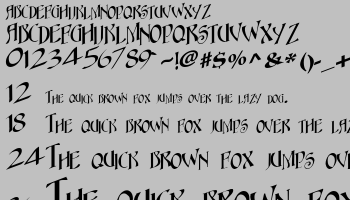 ABCDEFGHIJKLMNOPQRSTUVWXYZ
ABCDEFGHIJKLMNOPQRSTUVWXYZ
0123456789 ~!@#$%^&*()-_+
12 The quick brown fox jumps over the lazy dog.
18 The quick brown fox jumps over the laz
24 The quick brown fox jumps
The quick brown fox